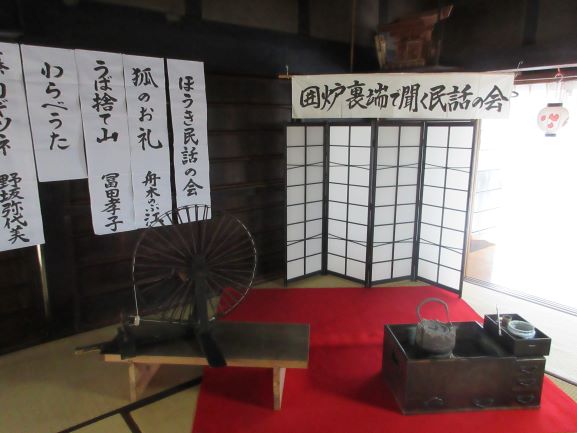 囲炉裏端で聞く民話の会
ほうき民話の会
狐のお礼
舟木のぶ江
うば捨て山
冨田孝子
わらべうた
野坂弥代美